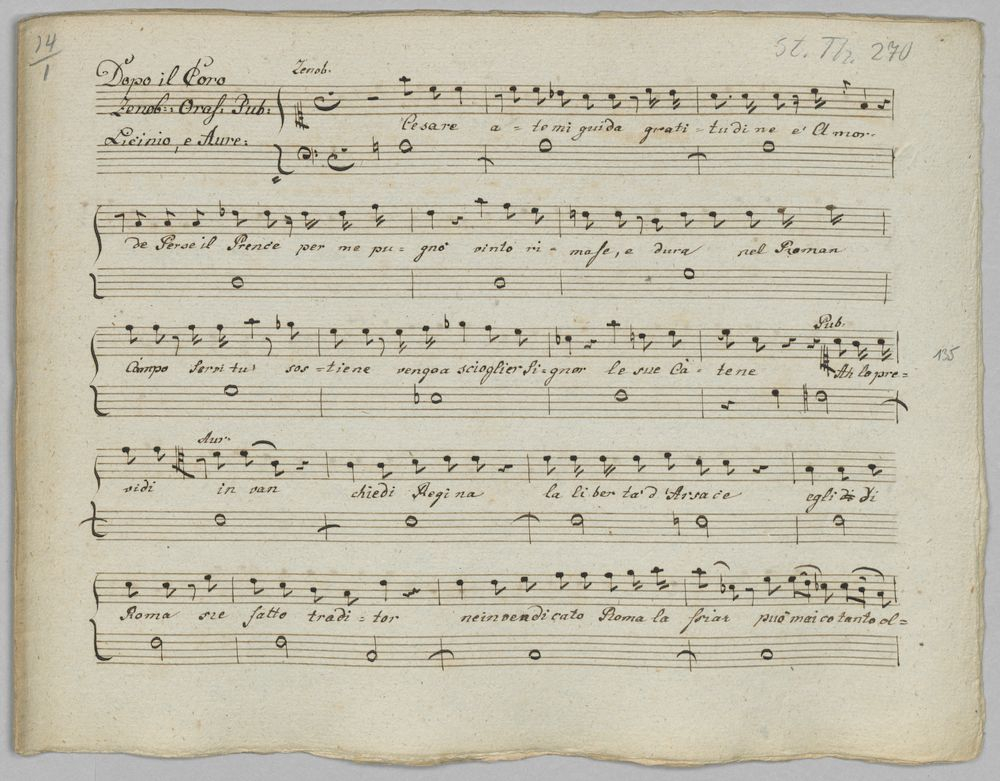 14
1
St. Th. 270
Dopo il Coro
Zenob: Oras: Pub:
Licinio, e Aure:
Zenob.
Cesare a = te mi guida grati = tudine e' Amor.
de Perse il Prence per me pu = gnò vinto ri = mase, e dura nel Roman
Campo servitù sos = tiene vengo a scioglier Si = gnor le sue Ca = tene
Pub.
Ah lo pre =
135
vidi
Aur.
in van chiedi Regina la liberta' d'Arsace egli di
Roma s'e fatto tradi = tor ne invendicato Roma la sciar può mai cotanto ol =